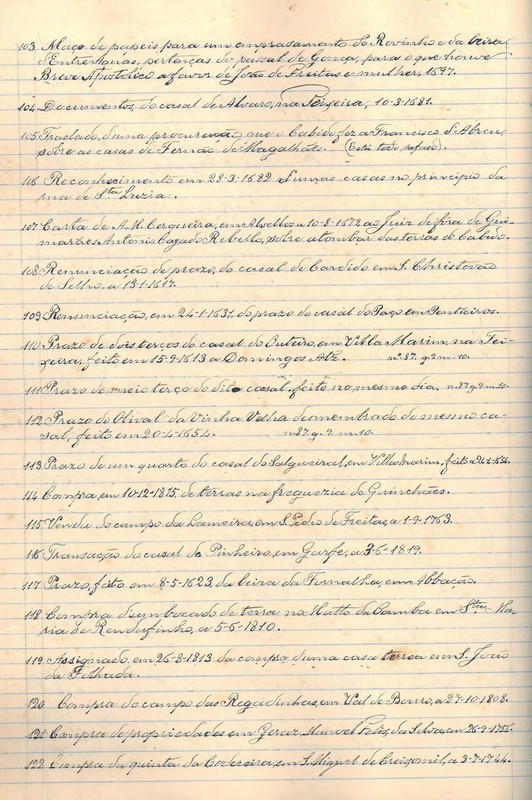 103 Maço de papeis, para um emprasamento do Rovinho e da beira
d'Entre Aguas, pertenças do passal de Gonça, para o que houve
Breve Apostolico a favor de João de Freitas e mulher, 1697.
104 Documentos, do casal de Alvaro, na Teixeira, 10-3-1681.
105 Traslado, d'uma procuração que o Cabido fez a Francisco d'Abreu,
sobre as casas de Fernão de Magalhães. (Está todo safado).
106 Reconhecimento em 28-3-1682 d'umas casas no principio da
rua de Sta Luzia.
107 Carta de A. M. Cerqueira, em Alvellos a 10-8-1672 ao Juiz de fóra de Gui-
marães Antonio Rebello, sobre atombar das terras do Cabido.
108 Renunciação de prazo, do casal de Candido em S. Christovão
de Selho, a 13-1-1617.
109 Renunciação, em 24-1-1631, do prazo do casal do Paço em Penteeiros.
110 Prazo de dois terços do casal do Outeiro, em Villa Marim, na Tei-
xeira, feito em 15-9-1613 a Domingos Alz. nº 87. g. 2 m. 10.
111 Prazo de meio terço do dito casal, feito no mesmo dia. n 87 g. 2 m. 10.
112 Prazo do Olival da Vinha Velha desmembrado do mesmo ca-
sal, feito em 20-4-1654. n 87 g. 2 m. 10.
113 Prazo de um quarto do casal do Salgueiral, em Villa Marim, feito a
114 Compra, em 10-12-1815, de terras na freguezia de Guinchães.
115 Venda do campo da Lameira, em S. Pedro de Freitas, a 1-9-1763.
116 Transação do casal de Pinheiro, em Garfe, a 3-6-1819.
117 Prazo, feito em 8-5-1623, da leira da Fornalha, em Abbação.
118 Compra d'um bocado de terra no Matto da Camba em Sta Ma-
ria de Rendufinho, a 5-6-1810.
119 Assignado, em 26-8-1813 da compra d'uma casa terrea em S. João
da Folhada.
120 Compra do campo das Regadinhas, em Val de Bouro, a 27-10-1808.
121 Compra de propriedades em Geraz, Manoel da Silva em 26-9-1755.
122 Compra da quinta da Codeceira, em S. Miguel de Creixomil, a 3-7-1744.